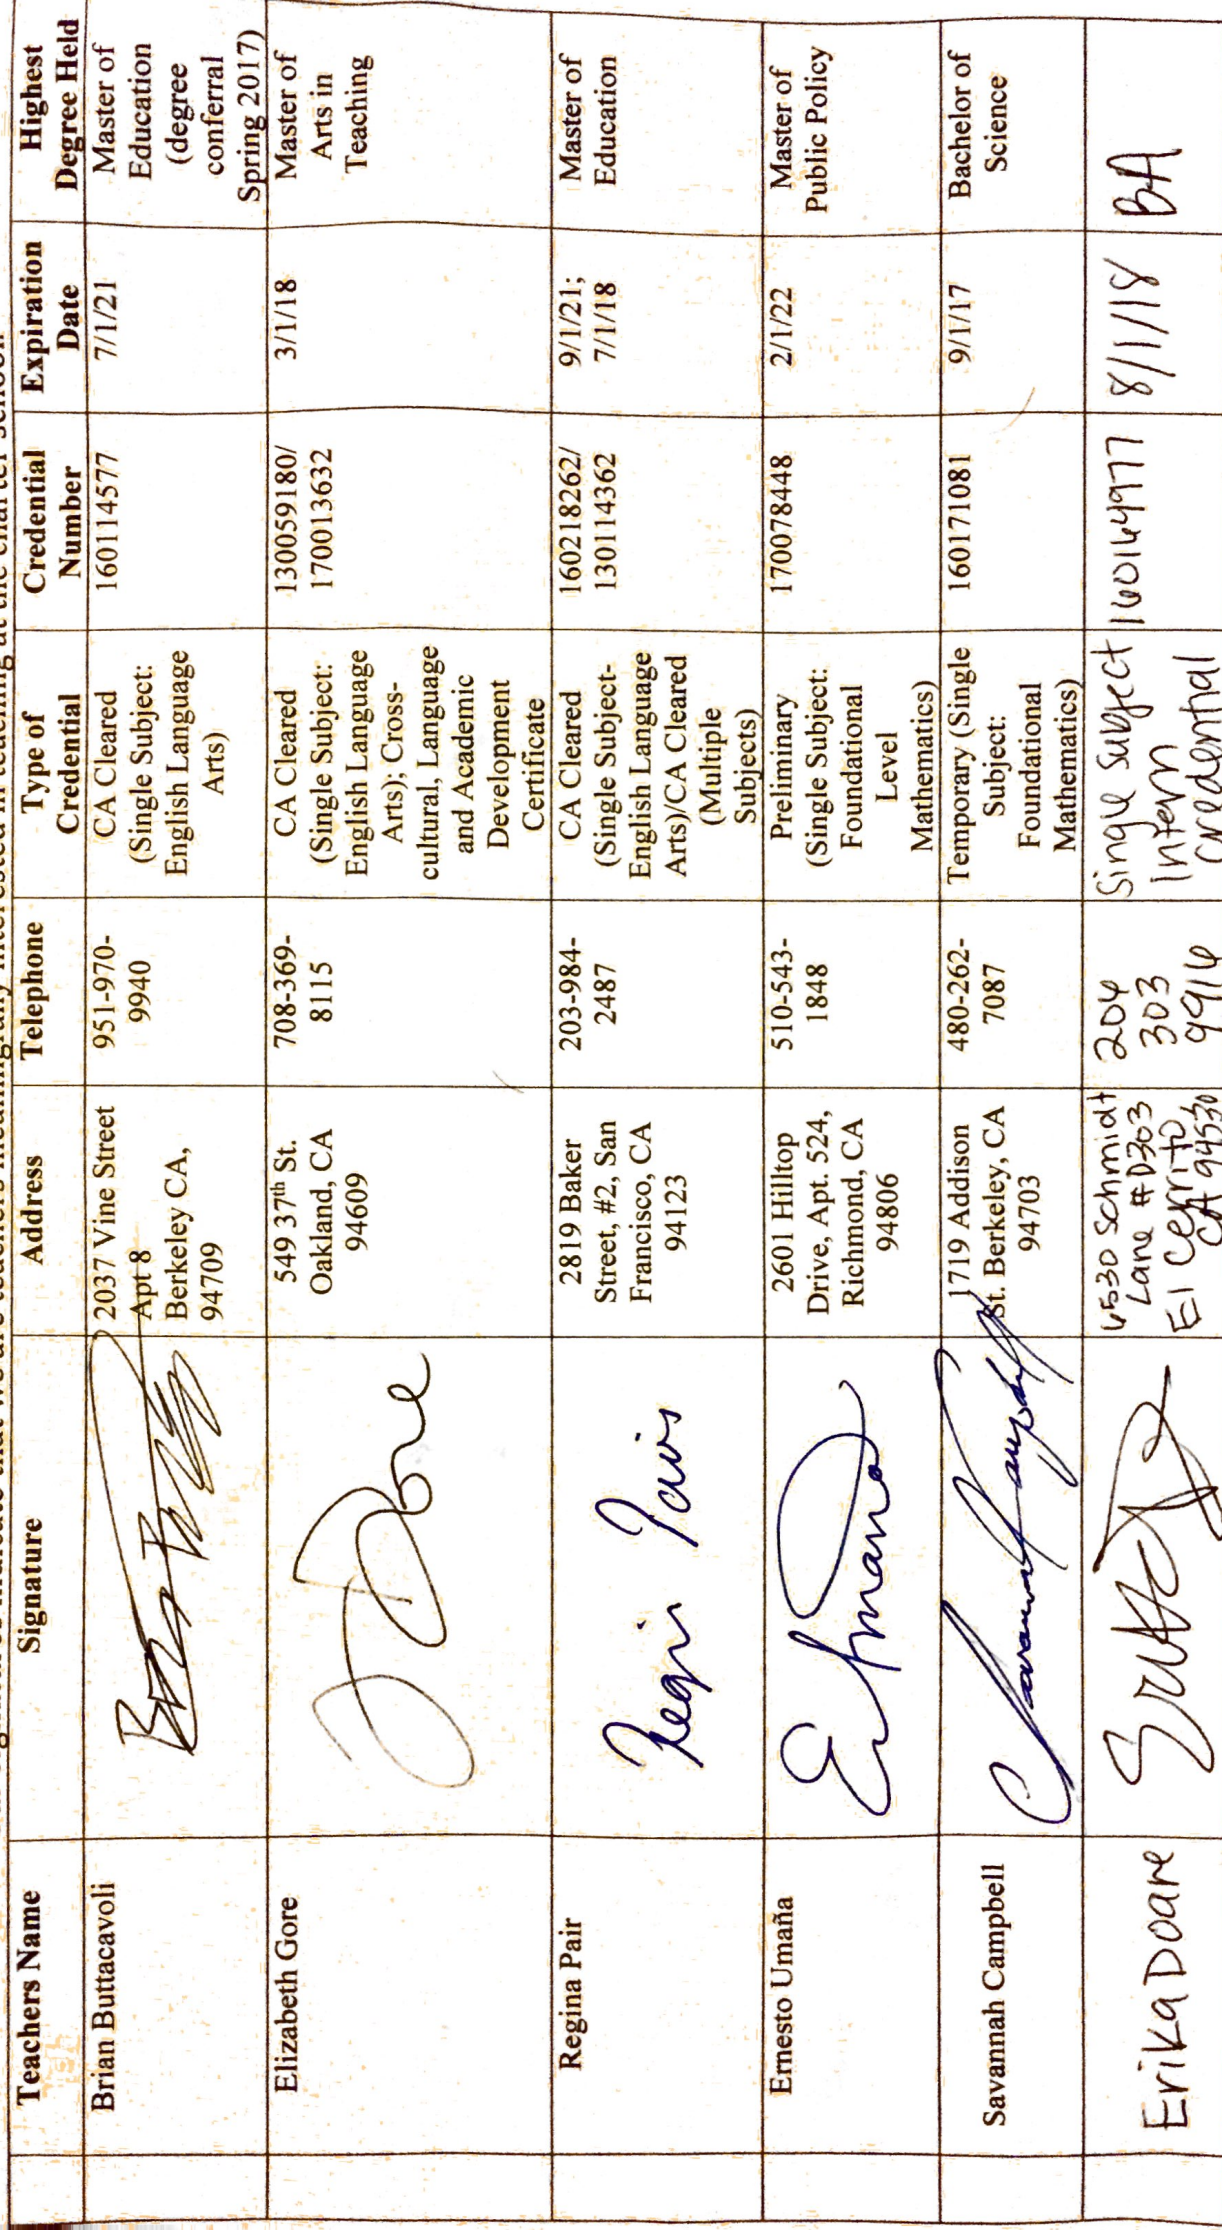 Teachers Name Signature Address Telephone Type of Credential Credential Number Expiration Date Highest Degree Held
Brian Buttacavoli
2037 Vine Street
Apt 8
Berkeley CA,
94709
951-970-
9940
CA Cleared
(Single Subject:
English Language
Arts)
160114577
7/1/21
Master of
Education
(degree
conferral
Spring 2017)
Elizabeth Gore
549 37th St.
Oakland, CA
94609
708-369-
8115
CA Cleared
(Single Subject:
English Language
Arts); Cross-
cultural, Language
and Academic
Development
Certificate
130059180/
170013632
3/1/18
Master of
Arts in
Teaching
Regina Pair
Regin Pair
2819 Baker
Street, #2, San
Francisco, CA
94123
203-984-
2487
CA Cleared
(Single Subject-
English Language
Arts)/CA Cleared
(Multiple
Subjects)
160218262/
130114362
9/1/21;
7/1/18
Master of
Education
Ernesto Umaña
2601 Hilltop
Drive, Apt. 524,
Richmond, CA
94806
510-543-
1848
Preliminary
(Single Subject:
Foundational
Level
Mathematics)
170078448
2/1/22
Master of
Public Policy
Savannah Campbell
Savannah Campbell
1719 Addison
St. Berkeley, CA
94703
480-262-
7087
Temporary (Single
Subject:
Foundational
Mathematics)
160171081
9/1/17
Bachelor of
Science
Erika Doare
Schmidt
Lane #D303
El Cerrito
CA 94530
303
Single Subject
Intern
Credential
8/1/18
BA